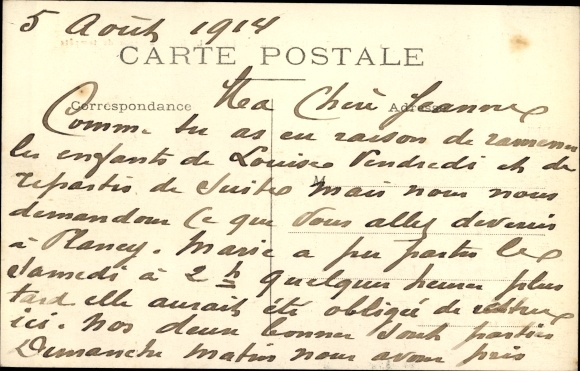 5 Août 1914
CARTE POSTALE
Correspondance
Adresse
Ma Chère Jeanne
Comme tu as eu raison de ramener
les enfants de Louise Vendredi et de
repartir de suite mais nous nous
demandons ce que vous allez devenir
à Plancy. Marie a pu partir le
Samedi à 2 h quelques heures plus
tard elle aurait été obligée de rester
ici. Nos deux bonnes sont parties
Dimanche matin nous avons pris